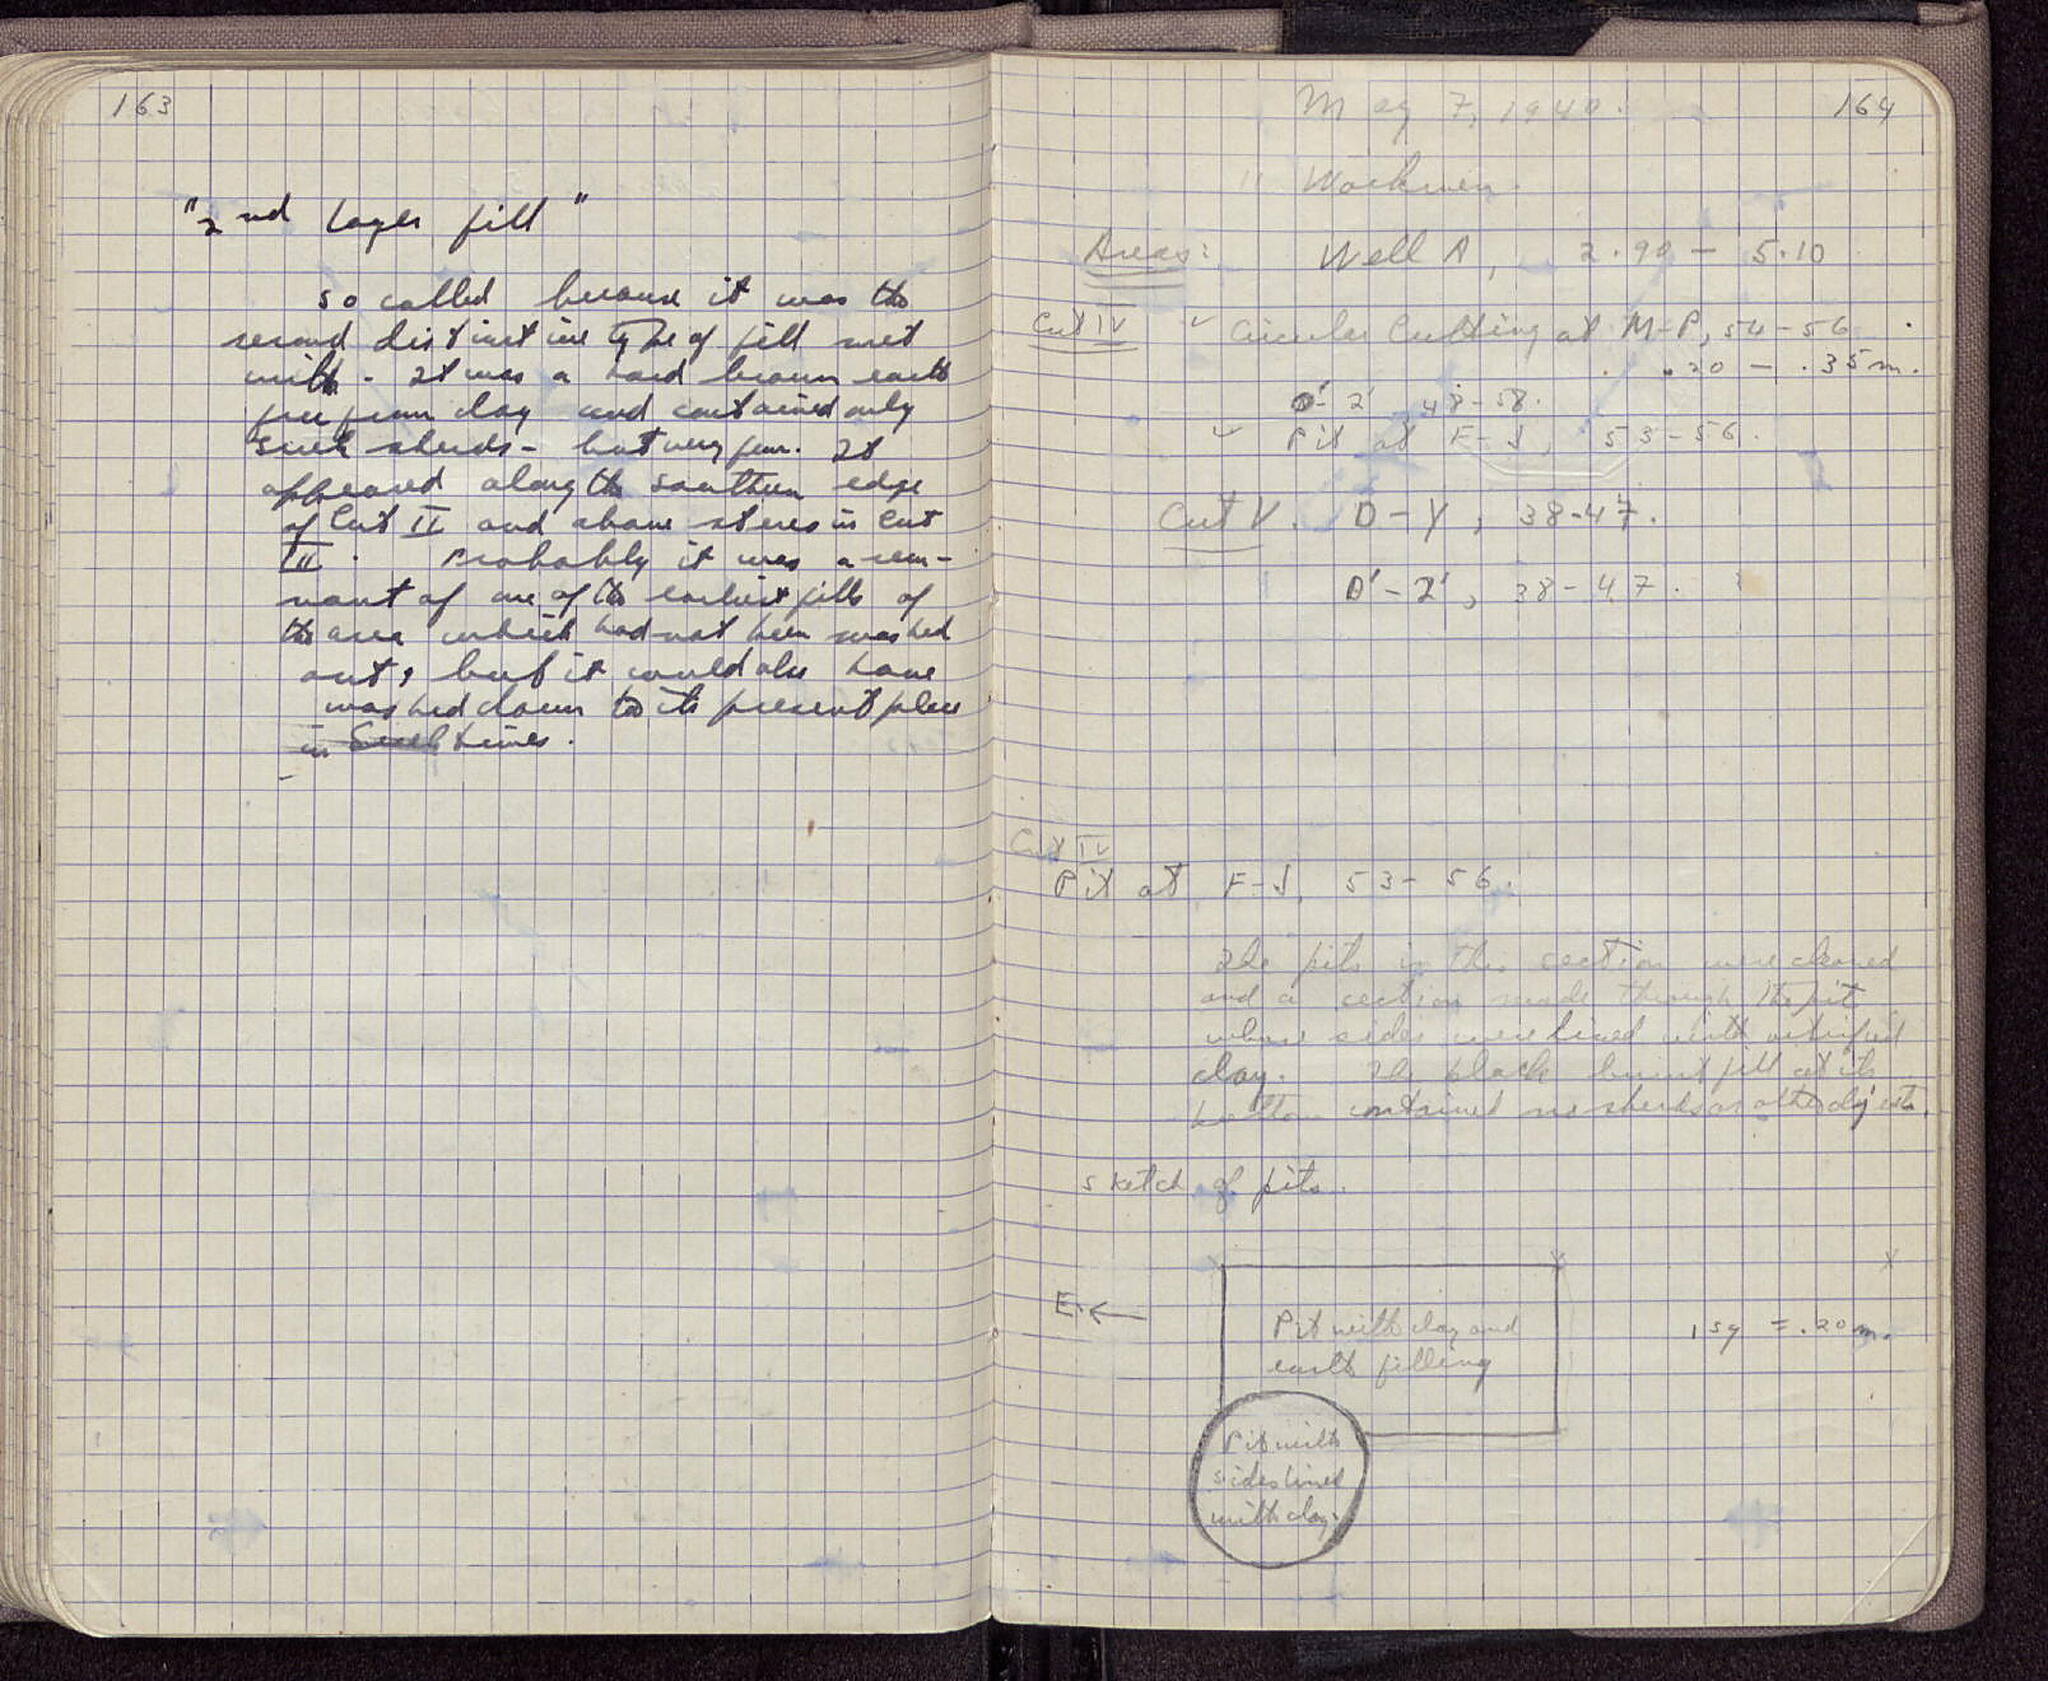 163
"2nd Layer fill"
so called because it was the
second distinctive type of fill met
with. It was a hard brown earth
free from clay and contained only
such sherds - but very few. It
appeared along the southern edge
of Cut II and above stereo in Cut
III. Probably it was a rem-
nant of one of the earliest fills of
the area which had not been washed
out, but it could also have
washed down to its present place
in times.
164
May 7, 1940.
11 Workmen.
Areas: Well A, 2.90 - 5.10
Cut IV ✓ Circular Cutting at M-P, 54-56
.20 - .35 m.
O'- 2' 48-58.
✓ Pit at F-J, 53-56.
Cut V. O-Y, 38-47.
O'-2', 38-47.
Cut IV
Pit at F-J, 53-56.
The pits in this section were cleaned
and a section made through the pit
whose sides were lined with vitrified
clay. The black burnt fill at its
bottom contained no sherds or other objects.
Sketch of pits.
E. ←
Pit with clay and
earth filling
1 sq = .20 m.
Pit with
sides lined
with clay.